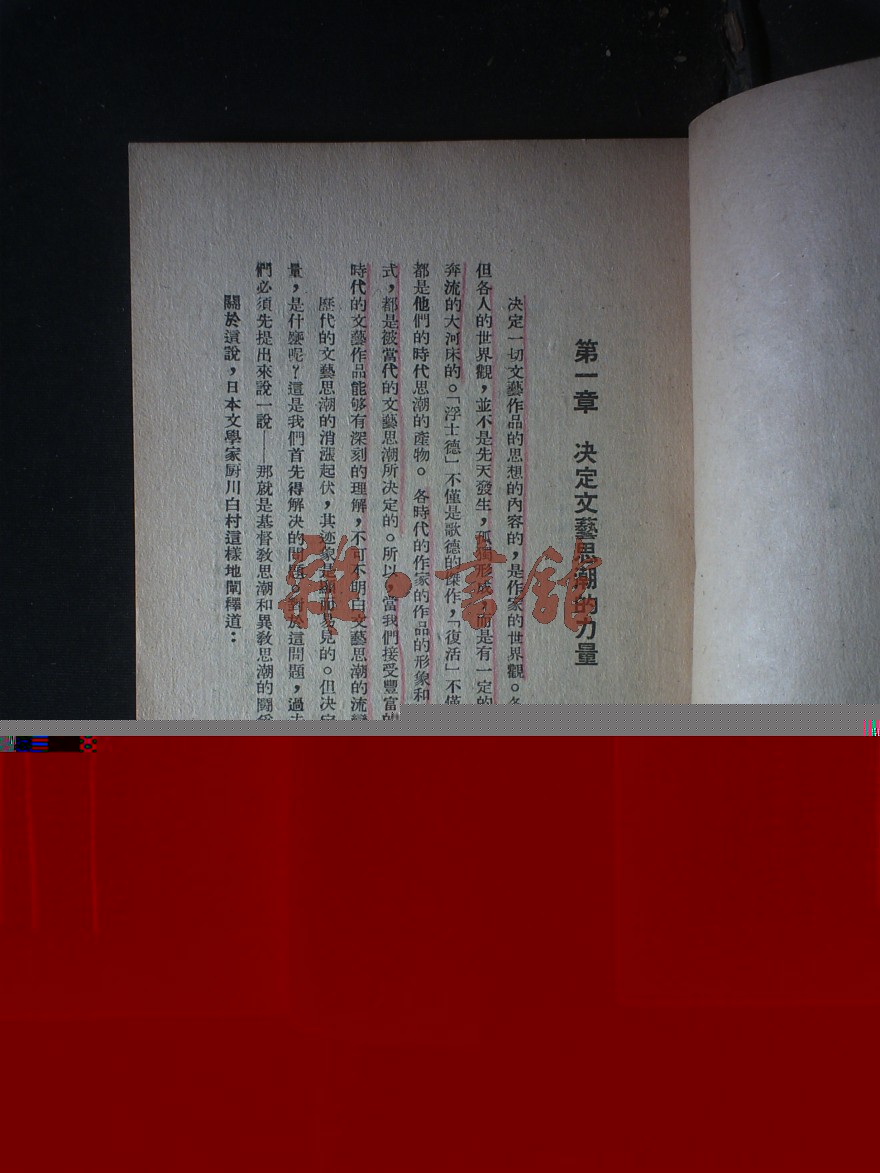 第一章 决定文藝思潮的力量
决定一切文藝作品的思想的內容的，是作家的世界觀。各
但各人的世界觀，並不是先天發生，孤獨形成，而是有一定的
奔流的大河床的。「浮士德」不僅是歌德的傑作，「復活」不僅
都是他們的時代思潮的產物。各時代的作家的作品的形象和
式，都是被當代的文藝思潮所决定的。所以，當我們接受豐富的
時代的文藝作品能够有深刻的理解，不可不明白文藝思潮的流變
歷代的文藝思潮的消漲起伏，其迹象是顯而易見的。但决定
量，是什麼呢？這是我們首先得解决的問題。對於這問題，過去
們必須先提出來說一說——那就是基督敎思潮和異敎思潮的鬭爭
關於這說，日本文學家厨川白村這樣地闡釋道：
雜·書館